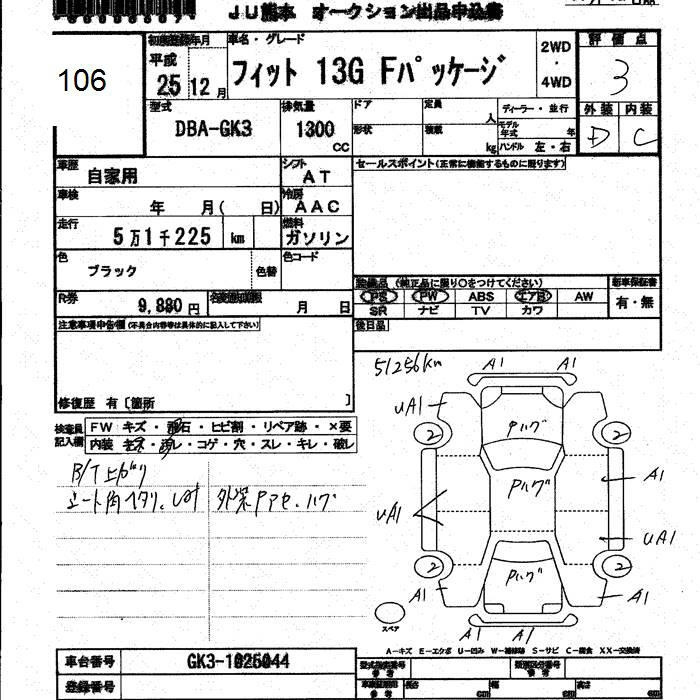 JU熊本 オークション出品申込書
106
初度登録年月
平成
25 12月
車名・グレード
フィット 13G Fパッケージ
2WD
・
4WD
評価点
3
型式
DBA-GK3
排気量
1300
CC
ドア
形状
定員
人
積載
kg
ディーラー・並行
モデル年式 年
ハンドル 左・右
外装 内装
D C
車歴
自家用
シフト
AT
セールスポイント(正常に機能するものに限ります)
車検
年 月( 日)
冷房
AAC
走行
5万1千225 km
燃料
ガソリン
色
ブラック
色替
色コード
R券
9,880円
月 日
装備品 (純正品に限り○をつけてください)
PS PW ABS エアB AW
SR ナビ TV カワ
新車保証書
有・無
後日品
注意事項申告欄(不具合内容等は具体的に記入して下さい)
修復歴 有〔箇所 〕
検査員記入欄
FW キズ・飛石・ヒビ割・リペア跡・×要
内装 キズ・汚レ・コゲ・穴・スレ・キレ・破レ
シート角ヘタリ、
51256km
A1 A1
UA1
2 2
Pハゲ
Pハゲ
Pハゲ
A1
UA1
UA1
2 2
A1 A1
A1 A1
スペア
A-キズ E-エクボ U-凹み W-補修跡 S-サビ C-腐食 XX-交換済
車台番号
GK3-1025044
登録番号
型式指定番号
参考
類別区分番号
参考
長さ cm
幅 cm
高さ cm